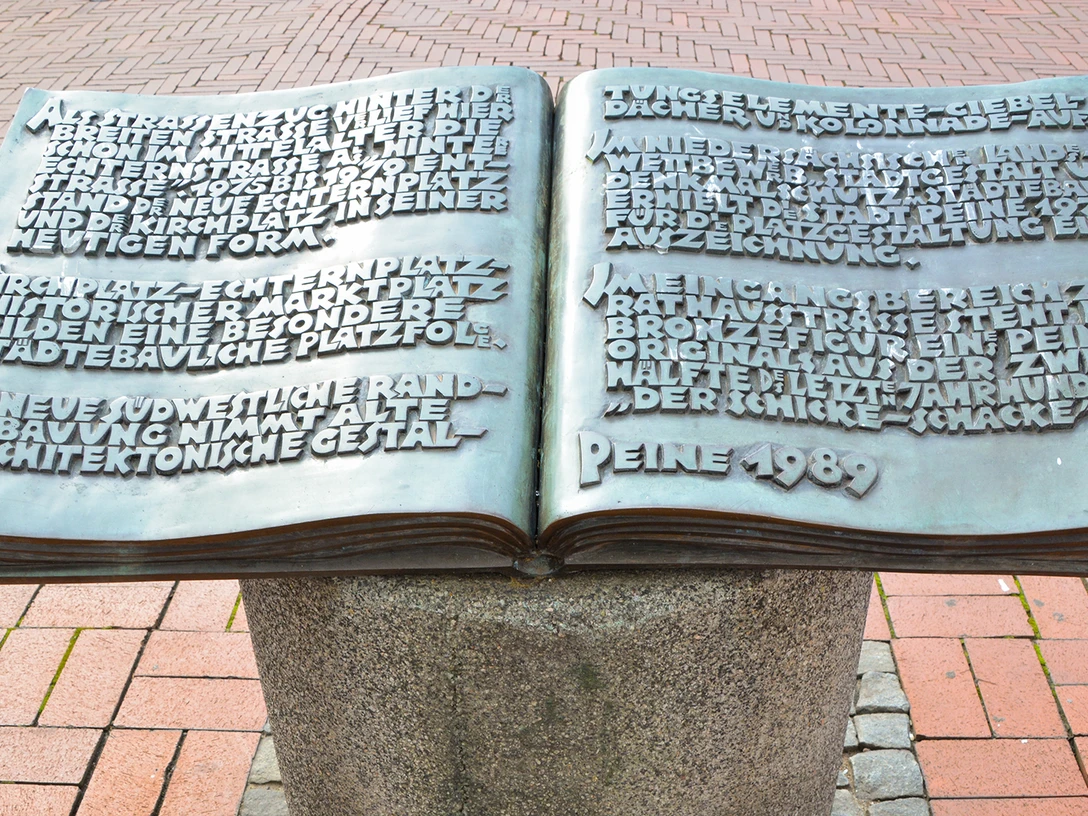 ALS STRASSENZUG HINTER DER
BREITEN STRASSE VERLIEF HIER
SCHON IM MITTELALTER DIE
ECHTERNSTRASSE ALS „HINTER
STRASSE". 1975 BIS 1979 ENT-
STAND DER NEUE ECHTERNPLATZ
UND DER KIRCHPLATZ IN SEINER
HEUTIGEN FORM.
IRCHPLATZ-ECHTERNPLATZ-
HISTORISCHER MARKTPLATZ
ILDEN EINE BESONDERE
TÄDTEBAULICHE PLATZFOLGE.
NEUE SÜDWESTLICHE RAND-
BAUUNG NIMMT ALTE
CHITEKTONISCHE GESTAL-
TUNGSELEMENTE-GIEBEL
DÄCHER UND KOLONNADE-AUF
IM NIEDERSÄCHSISCHEN LANDE
WETTBEWERB „STADTGESTALT U
DENKMALSCHUTZ IM STÄDTEBAU
ERHIELT DIE STADT PEINE 19
FÜR DIE PLATZGESTALTUNG EI
AUSZEICHNUNG.
IM EINGANGSBEREICH Z
RATHAUSSTRASSE STEHT
BRONZEFIGUR EINES PEIN
ORIGINALS AUS DER ZWE
HÄLFTE DES LETZTEN JAHRHUND
„DER SCHICKE-SCHACKE
PEINE 1989